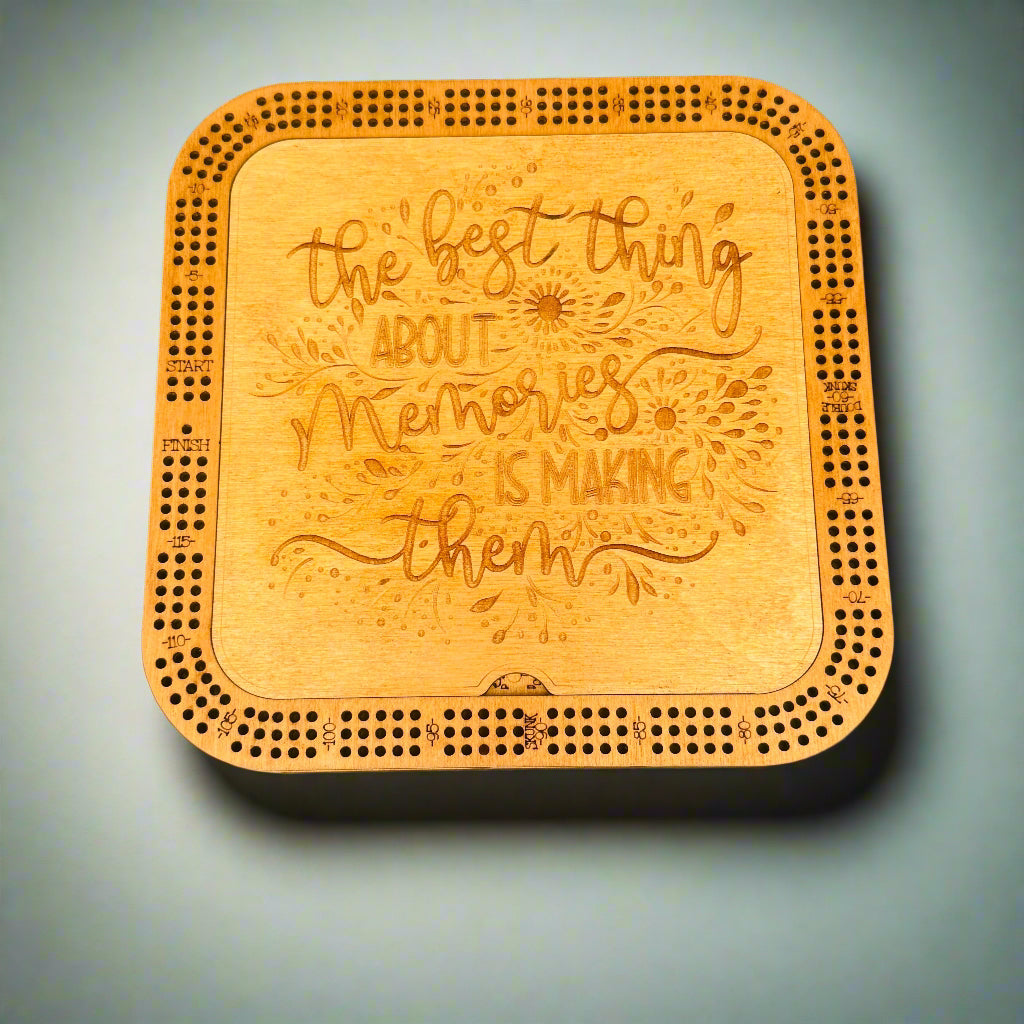 the best thing
ABOUT
Memories
IS MAKING
them
START
-5-
-10-
-15-
-20-
-25-
-30-
-35-
-40-
-45-
-50-
-55-
DOUBLE
-60-
SKUNK
-65-
-70-
-75-
-80-
-85-
-90-
SKUNK
-95-
-100-
-105-
-110-
-115-
FINISH